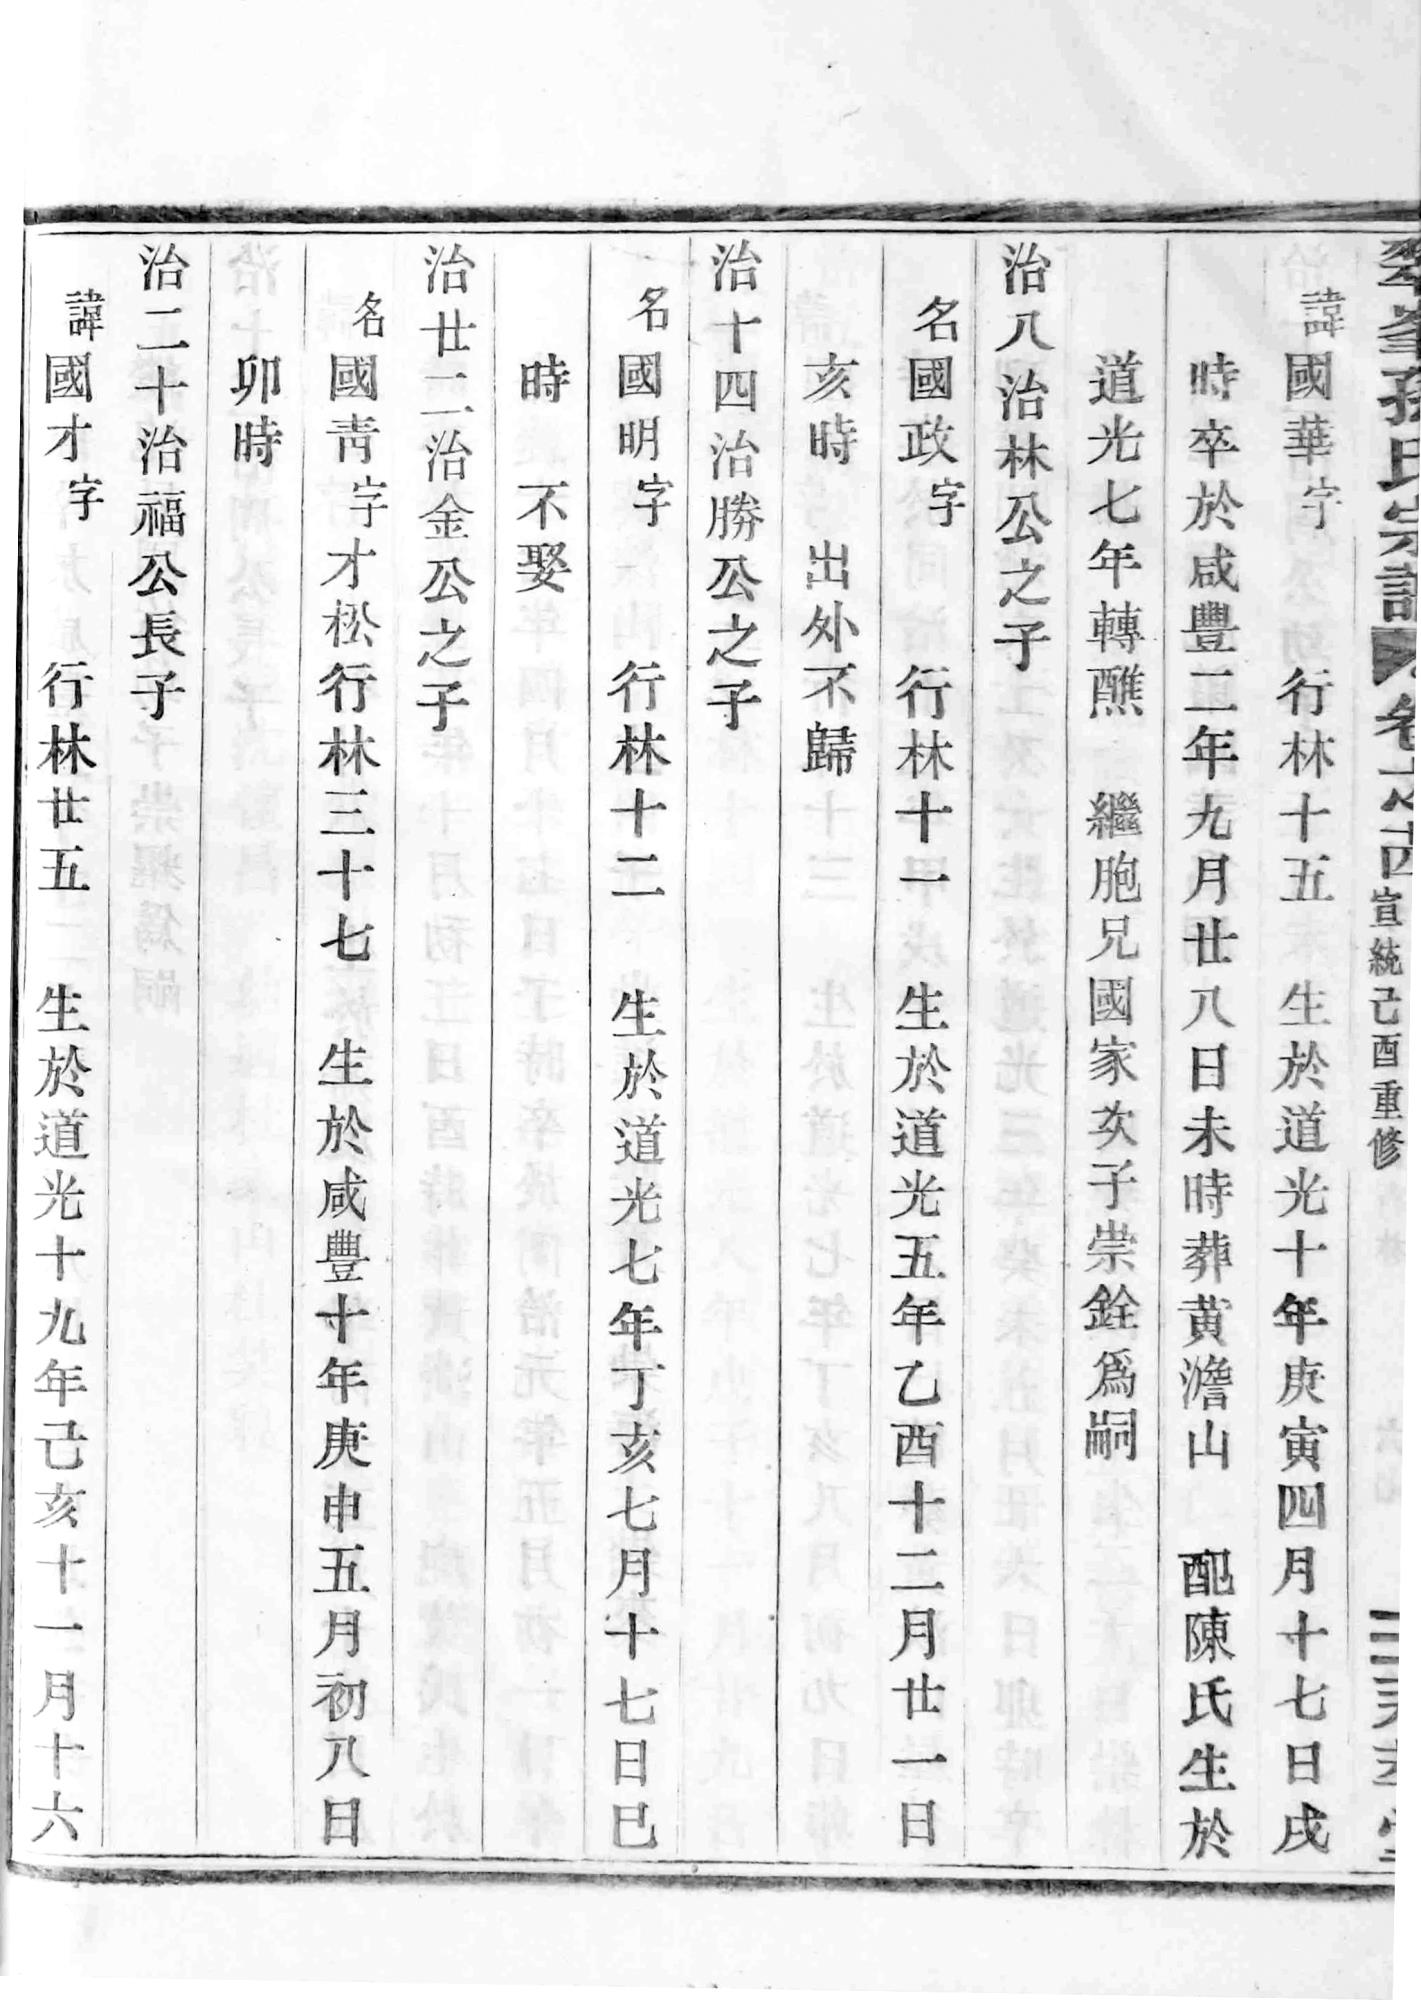 峯孫氏宗譜 卷之十四 宣統己酉重修
諱國華字 行林十五 生於道光十年庚寅四月十七日戌
時卒於咸豐二年九月廿八日未時葬黃澹山 配陳氏生於
道光七年轉醮 繼胞兄國家次子崇銓爲嗣
治八治林公之子
名國政字 行林十一 生於道光五年乙酉十二月廿一日
亥時 出外不歸
治十四治勝公之子
名國明字 行林十二 生於道光七年丁亥七月十七日巳
時 不娶
治廿二治金公之子
名國靑字才松行林三十七 生於咸豐十年庚申五月初八日
卯時
治二十治福公長子
諱國才字 行林廿五 生於道光十九年己亥十一月十六